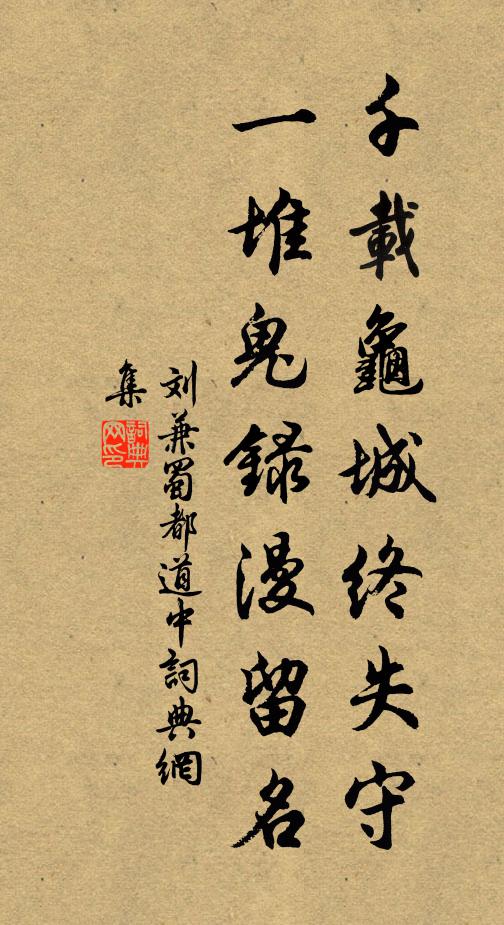 千載龜城終失守
一堆鬼錄漫留名
刘兼蜀都道中詞典網
集
詞典網印